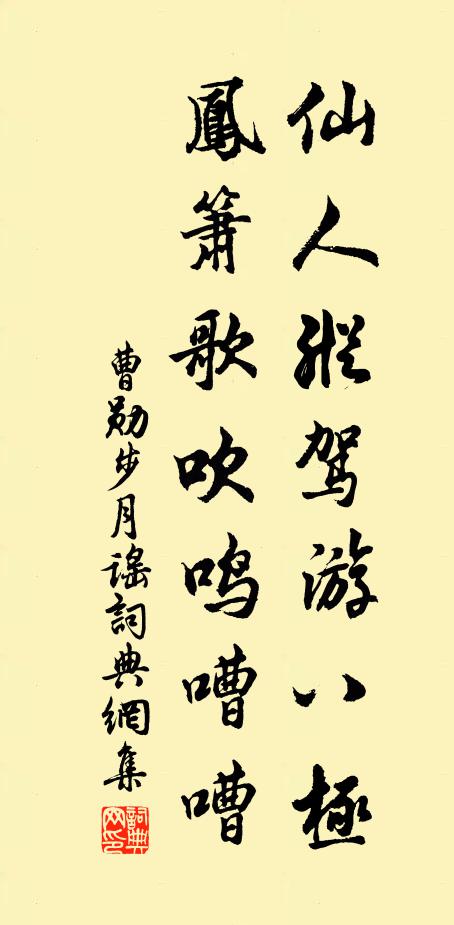 仙人縱驾游八極
鳳簫歌吹鸣嘈嘈
曹勛步月謡詞典網集
詞典
网印